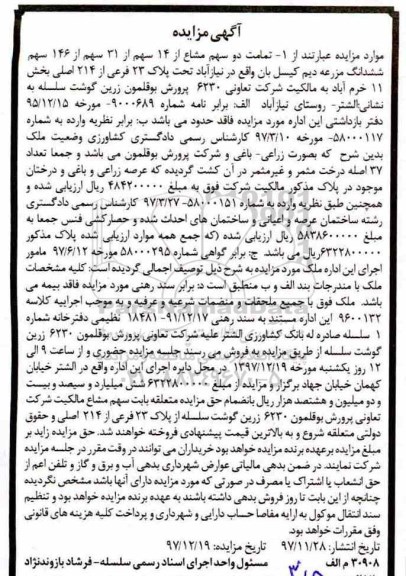 آگهی مزایده
موارد مزایده عبارتند از ۱- تمامت دو سهم مشاع از ۱۴ سهم از ۳۱ سهم از ۱۴۶ سهم
ششدانگ مزرعه دیم کیسل بان واقع در نیازآباد تحت پلاک ۲۳ فرعی از ۲۱۴ اصلی بخش
۱۱ خرم آباد به مالکیت شرکت تعاونی ۶۲۳۰ پرورش بوقلمون زرین گوشت سلسله به
نشانی:الشتر- روستای نیازآباد الف: برابر نامه شماره ۹۰۰۰۶۸۹- مورخه ۹۵/۱۲/۱۵
دفتر بازداشتی این اداره مورد مزایده فاقد حدود می باشد ب: برابر نظریه وارده به شماره
۵۸۰۰۰۱۱۷- مورخه ۹۷/۳/۱۰ کارشناس رسمی دادگستری کشاورزی وضعیت ملک
بدین شرح که بصورت زراعی- باغی و شرکت پرورش بوقلمون می باشد و جمعا تعداد
۳۷ اصله درخت مثمر و غیرمثمر در آن کشت گردیده که عرصه زراعی و باغی و درختان
موجود در پلاک مذکور مالکیت شرکت فوق به مبلغ ۴۸۴۲۰۰۰۰۰ ریال ارزیابی شده و
همچنین طبق نظریه وارده به شماره ۵۸۰۰۰۱۵۱- ۹۷/۳/۲۷ کارشناس رسمی دادگستری
رشته ساختمان عرصه و اعیانی و ساختمان های احداث شده و حصارکشی فنس جمعا به
مبلغ ۵۸۳۸۶۰۰۰۰۰ ریال ارزیابی شده (که جمع همه موارد ارزیابی شده پلاک مذکور
۶۳۲۲۸۰۰۰۰۰ریال می باشد. ج: برابر گواهی شماره ۵۸۰۰۰۲۹۵ مورخه ۹۷/۶/۱۲ مامور
اجرای این اداره ملک مورد مزایده به شرح ذیل توصیف اجمالی گردیده است: کلیه مشخصات
ملک با مندرجات بند الف و ب منطبق است د: برابر سند رهنی مورد مزایده فاقد بیمه می
باشد. ملک فوق با جمیع ملحقات و منضمات شرعیه و عرفیه و به موجب اجراییه کلاسه
۹۶۰۰۱۳۲ این اداره مستند به سند رهنی ۹۱/۱۲/۱۷- ۱۸۴۸۱ تنظیمی دفترخانه شماره
۱ سلسله صادره له بانک کشاورزی الشتر علیه شرکت تعاونی پرورش بوقلمون ۶۲۳۰ زرین
گوشت سلسله از طریق مزایده به فروش می رسند جلسه مزایده حضوری و از ساعت ۹ الی
۱۲ روز یکشنبه مورخه ۱۳۹۷/۱۲/۱۹ در محل دایره اجرای این اداره واقع در الشتر خیابان
کهمان خیابان جهاد برگزار و مزایده از مبلغ ۶۳۲۲۸۰۰۰۰۰ شش میلیارد و سیصد و بیست
و دو میلیون و هشتصد هزار ریال بانضمام حق مزایده متعلقه بابت سهم مشاع مالکیت شرکت
تعاونی پرورش بوقلمون ۶۲۳۰ زرین گوشت سلسله از پلاک ۲۳ فرعی از ۲۱۴ اصلی و حقوق
دولتی متعلقه شروع و به بالاترین قیمت پیشنهادی فروخته خواهند شد. حق مزایده زاید بر
مبلغ مزایده برعهده برنده مزایده خواهد بود خریداران می توانند در وقت مقرر در جلسه مزایده
شرکت نمایند. در ضمن بدهی مالیاتی عوارض شهرداری بدهی آب و برق و گاز و تلفن اعم از
حق انشعاب یا اشتراک یا مصرف در صورتی که مورد مزایده دارای آنها باشد مشخص نگردیده
چنانچه از این بابت تا روز فروش بدهی داشته باشند به عهده برنده مزایده خواهد بود و تنظیم
سند انتقال موکول به ارایه مفاصا حساب دارایی و شهرداری و پرداخت کلیه هزینه های قانونی
وفق مقررات خواهد بود.
تاریخ انتشار: ۹۷/۱۱/۲۸ تاریخ مزایده: ۹۷/۱۲/۱۹
۳۰۹۰۸ م الف مسئول واحد اجرای اسناد رسمی سلسله- فرشاد بازوندنژاد